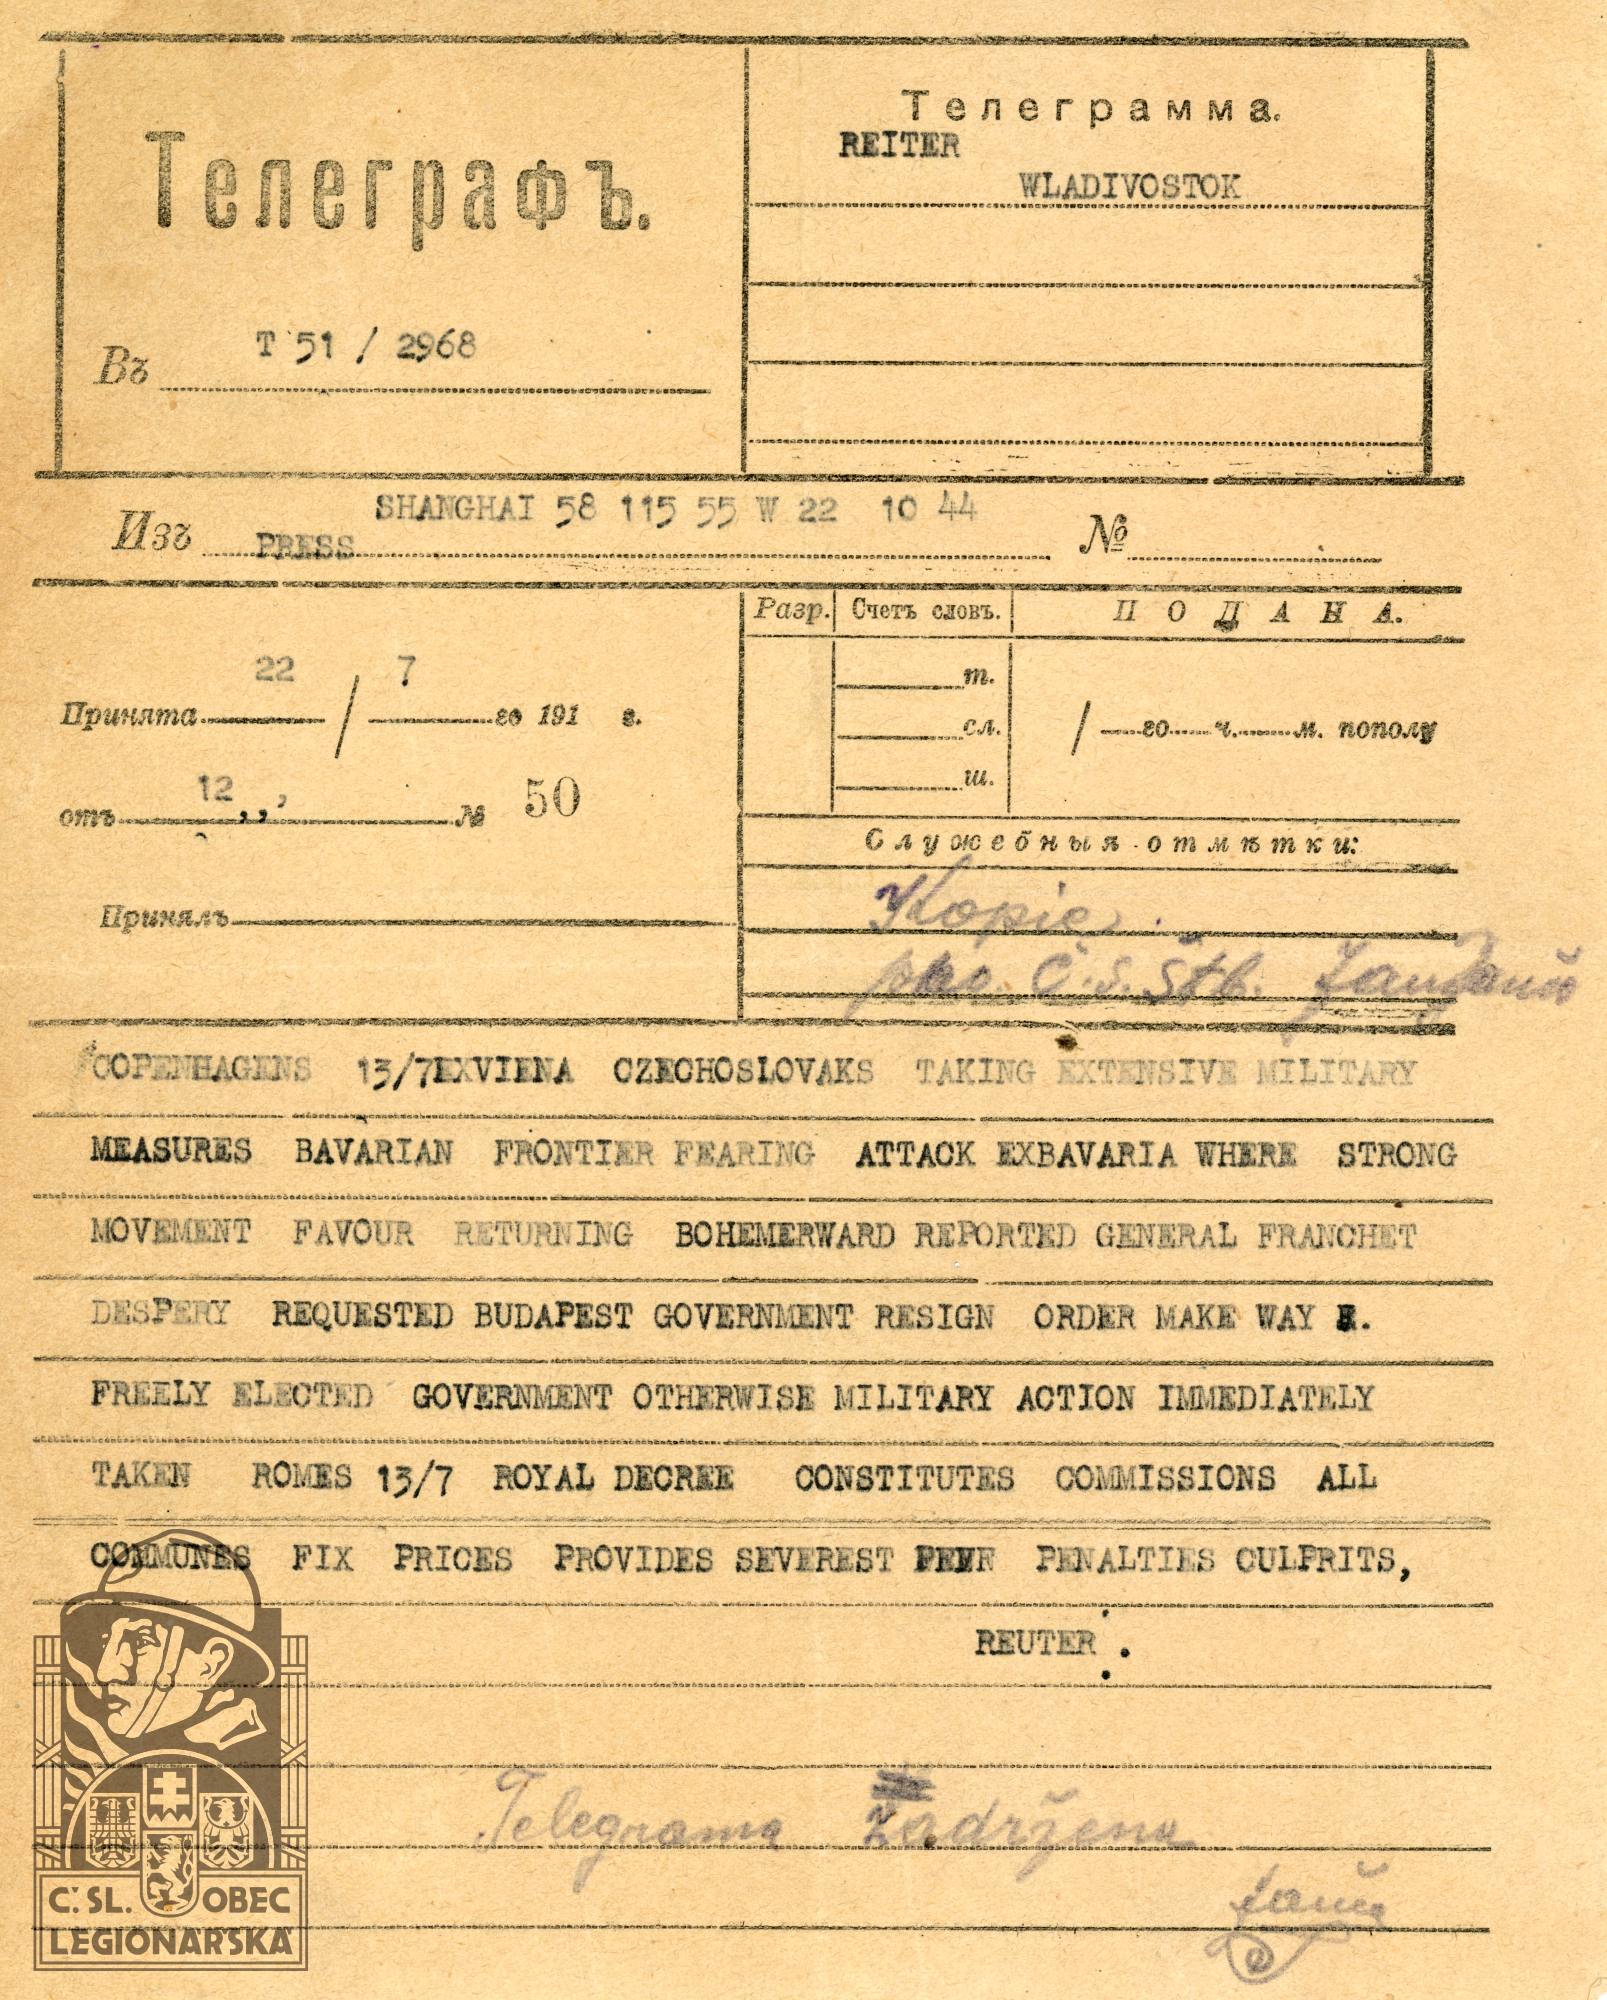 Телеграфъ.
Телеграмма.
REITER
WLADIVOSTOK
Въ T 51 / 2968
Изъ SHANGHAI 58 115 55 W 22 10 44 №
PRESS
Разр. Счетъ словъ. ПОДАНА.
22 / 7
Принята / го 191 г.
т.
сл.
ш.
/ го ч. м. пополу
отъ 12 № 50
Служебныя отмѣтки:
Принялъ
Kopie
pro Č.S. Štb.
COPENHAGENS 13/7EXVIENA CZECHOSLOVAKS TAKING EXTENSIVE MILITARY
MEASURES BAVARIAN FRONTIER FEARING ATTACK EXBAVARIA WHERE STRONG
MOVEMENT FAVOUR RETURNING BOHEMERWARD REPORTED GENERAL FRANCHET
DESPERY REQUESTED BUDAPEST GOVERNMENT RESIGN ORDER MAKE WAY .
FREELY ELECTED GOVERNMENT OTHERWISE MILITARY ACTION IMMEDIATELY
TAKEN ROMES 13/7 ROYAL DECREE CONSTITUTES COMMISSIONS ALL
COMMUNES FIX PRICES PROVIDES SEVEREST PENALTIES CULPRITS,
REUTER .
Telegrama Zadržena
Č. SL. OBEC
LEGIONÁŘSKÁ